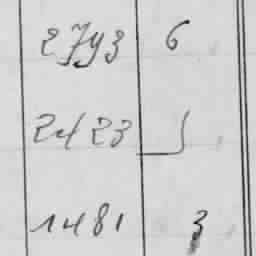 2743 6
2423
1481 3